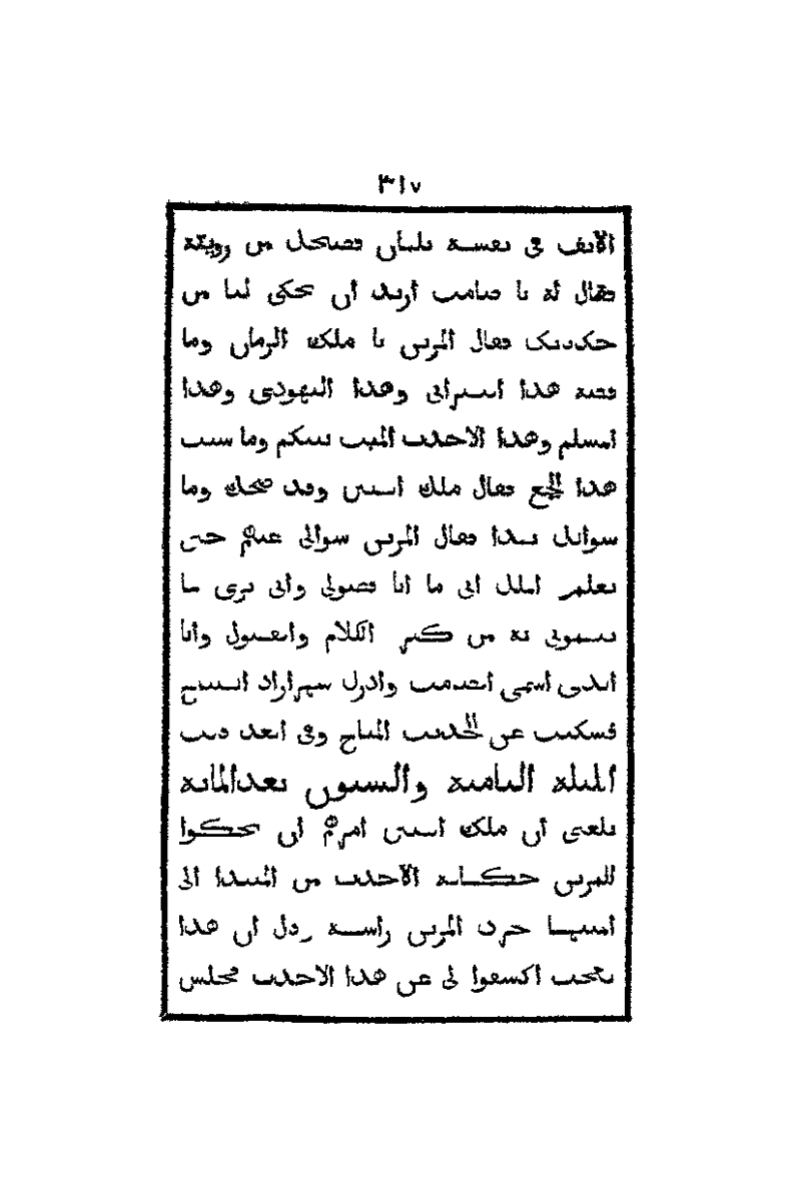 ٣١٧
الانف في نفسه تلتان فضحك من رويته
فقال له يا صامت اريد ان تحكي لنا من
حكاياتك فقال المزين يا ملك الزمان وما
قصة هذا النصراني وهذا اليهودي وهذا
المسلم وهذا الاحدب الميت بينكم وما سبب
هذا الجمع فقال ملك الصين وقد ضحك وما
سوالك بهذا فقال المزين سوالي عنهم حتى
يعلم الملك اني ما انا فضولي واني بري مما
يتهموني به من كثر الكلام والفضول وانا
الذي اسمي الصامت وادرك شهرازاد الصبح
فسكتت عن الحديث المباح وفي الغد قالت
الليلة الثامنة والستون بعد المائة
بلغني ان ملك الصين امرهم ان يحكوا
للمزين حكاية الاحدب من المبتدا الى
المنتها حرك المزين راسه وقال ان هذا
عجب اكشفوا لي عن هذا الاحدب فجلس